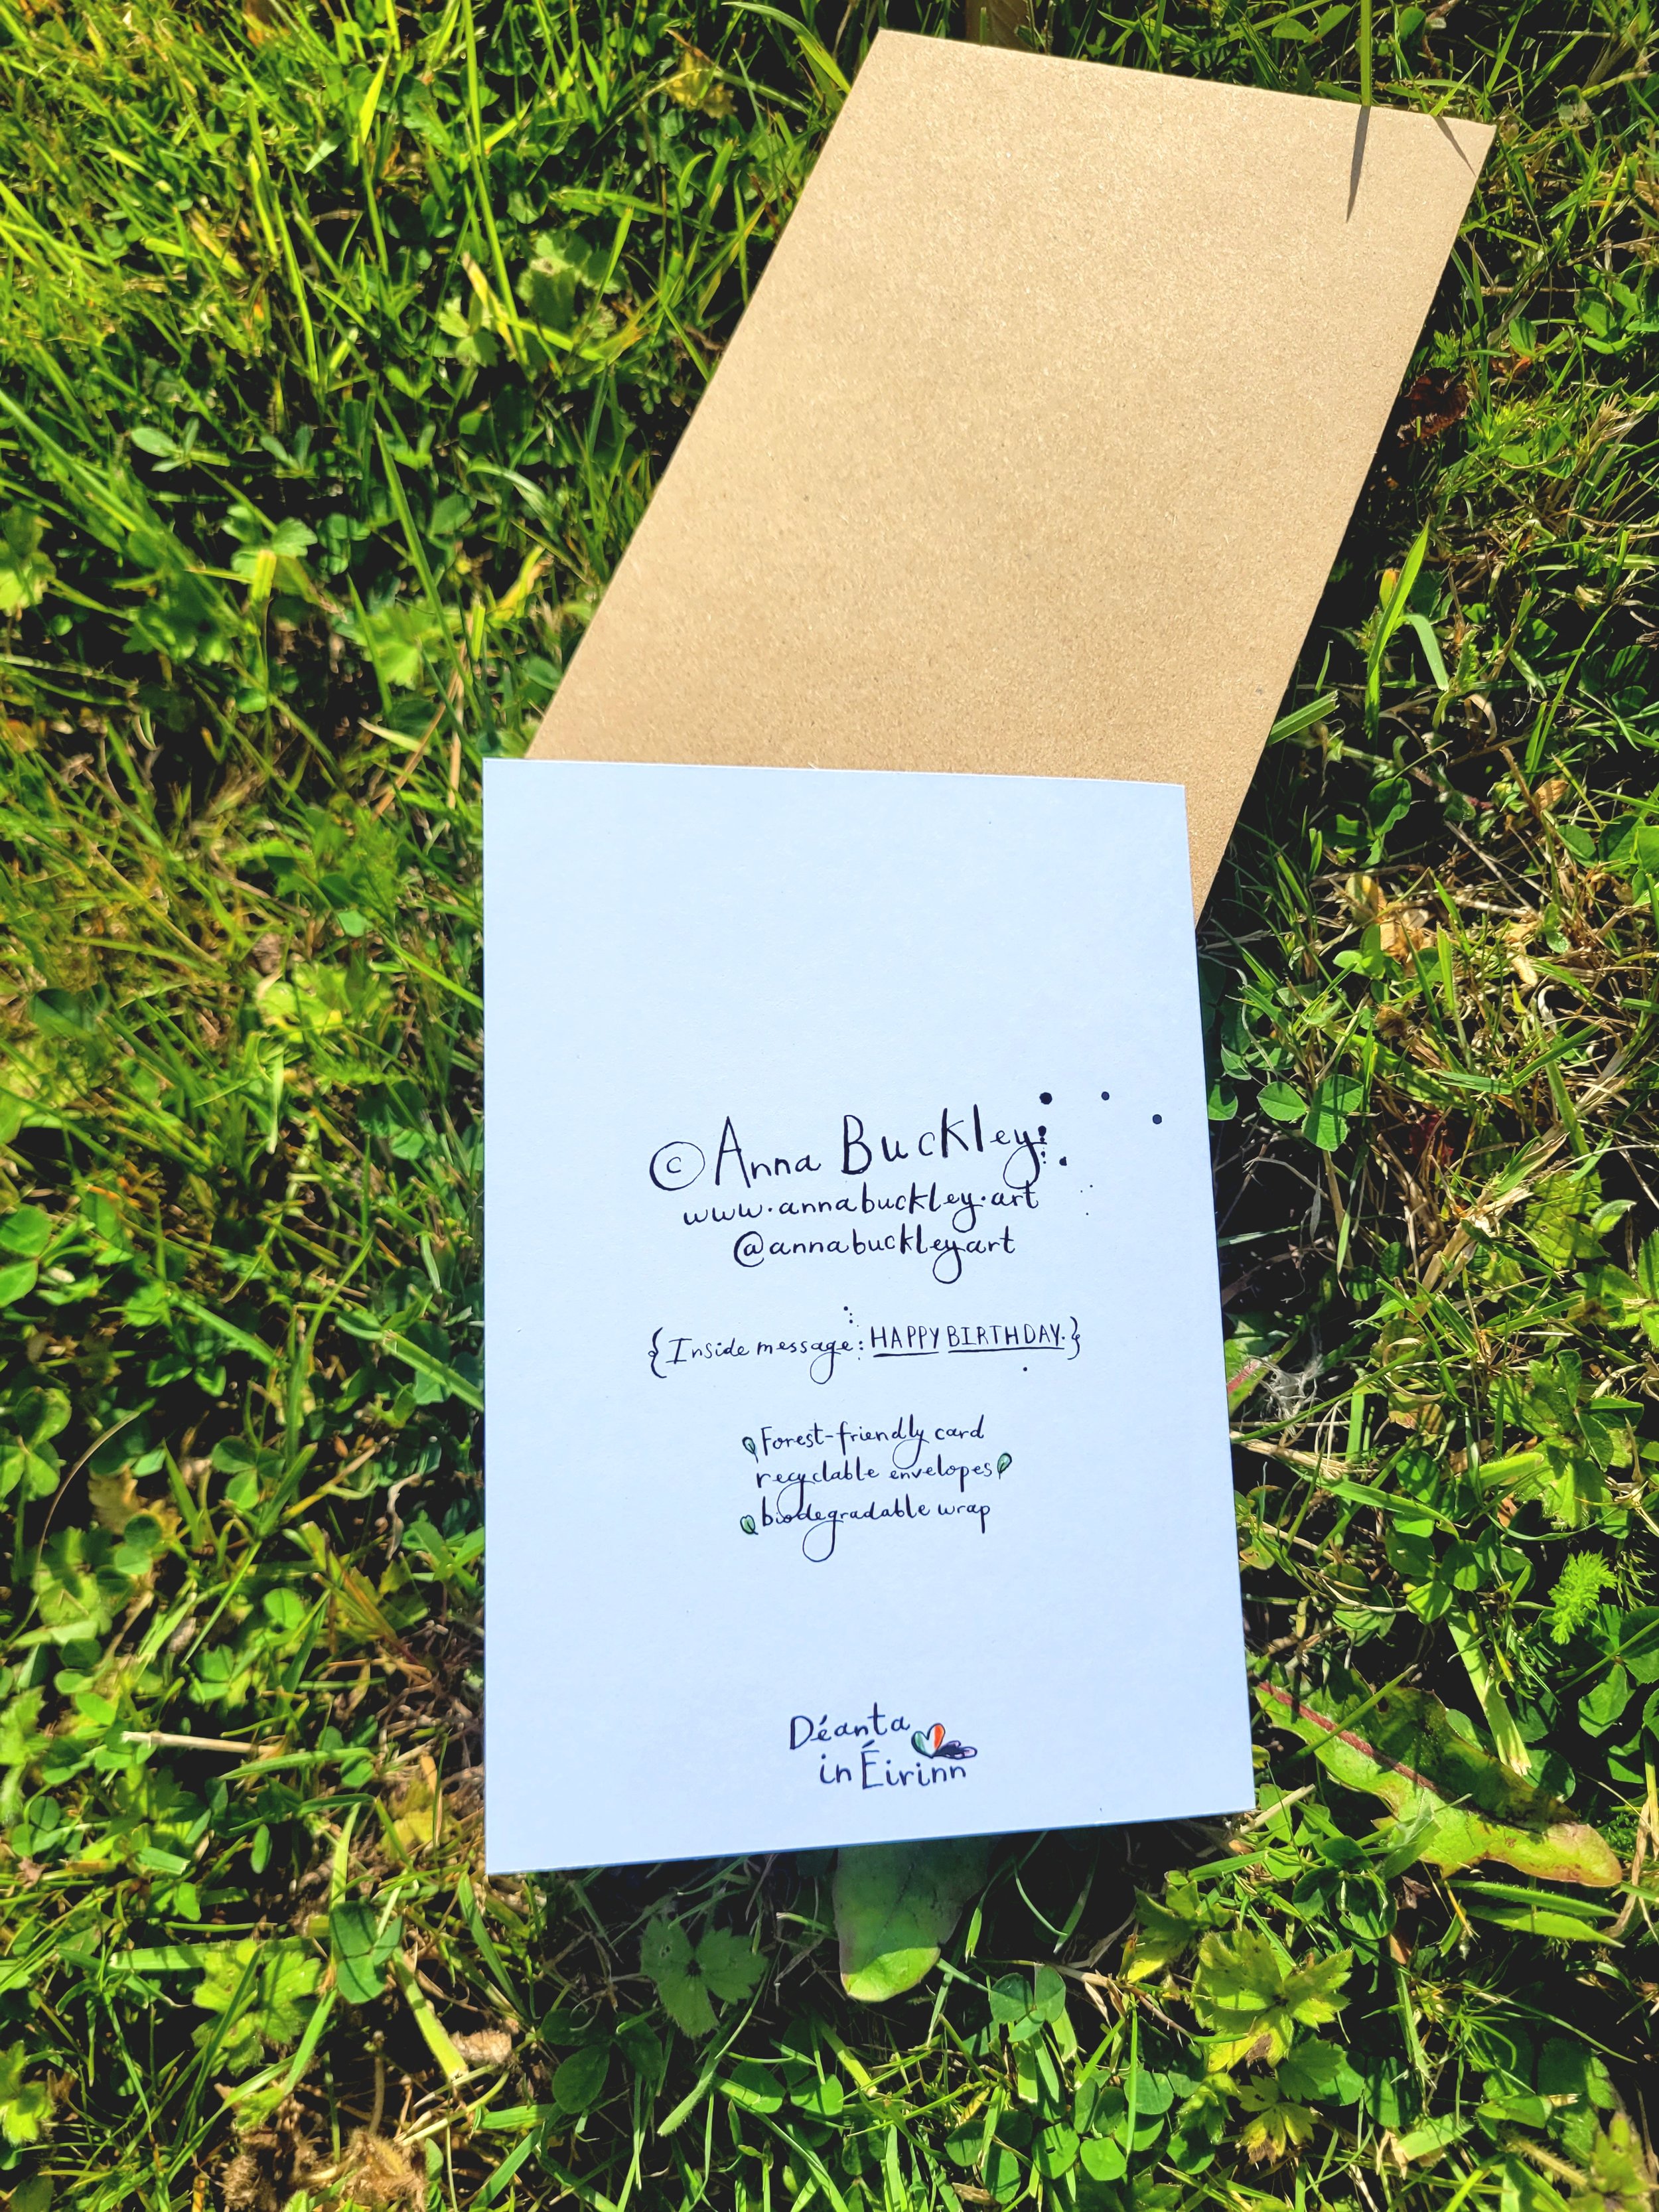 © Anna Buckley
www.annabuckley.art
@annabuckleyart
{Inside message: HAPPY BIRTHDAY.}
Forest-friendly card
recyclable envelopes
biodegradable wrap
Déanta
in Éirinn